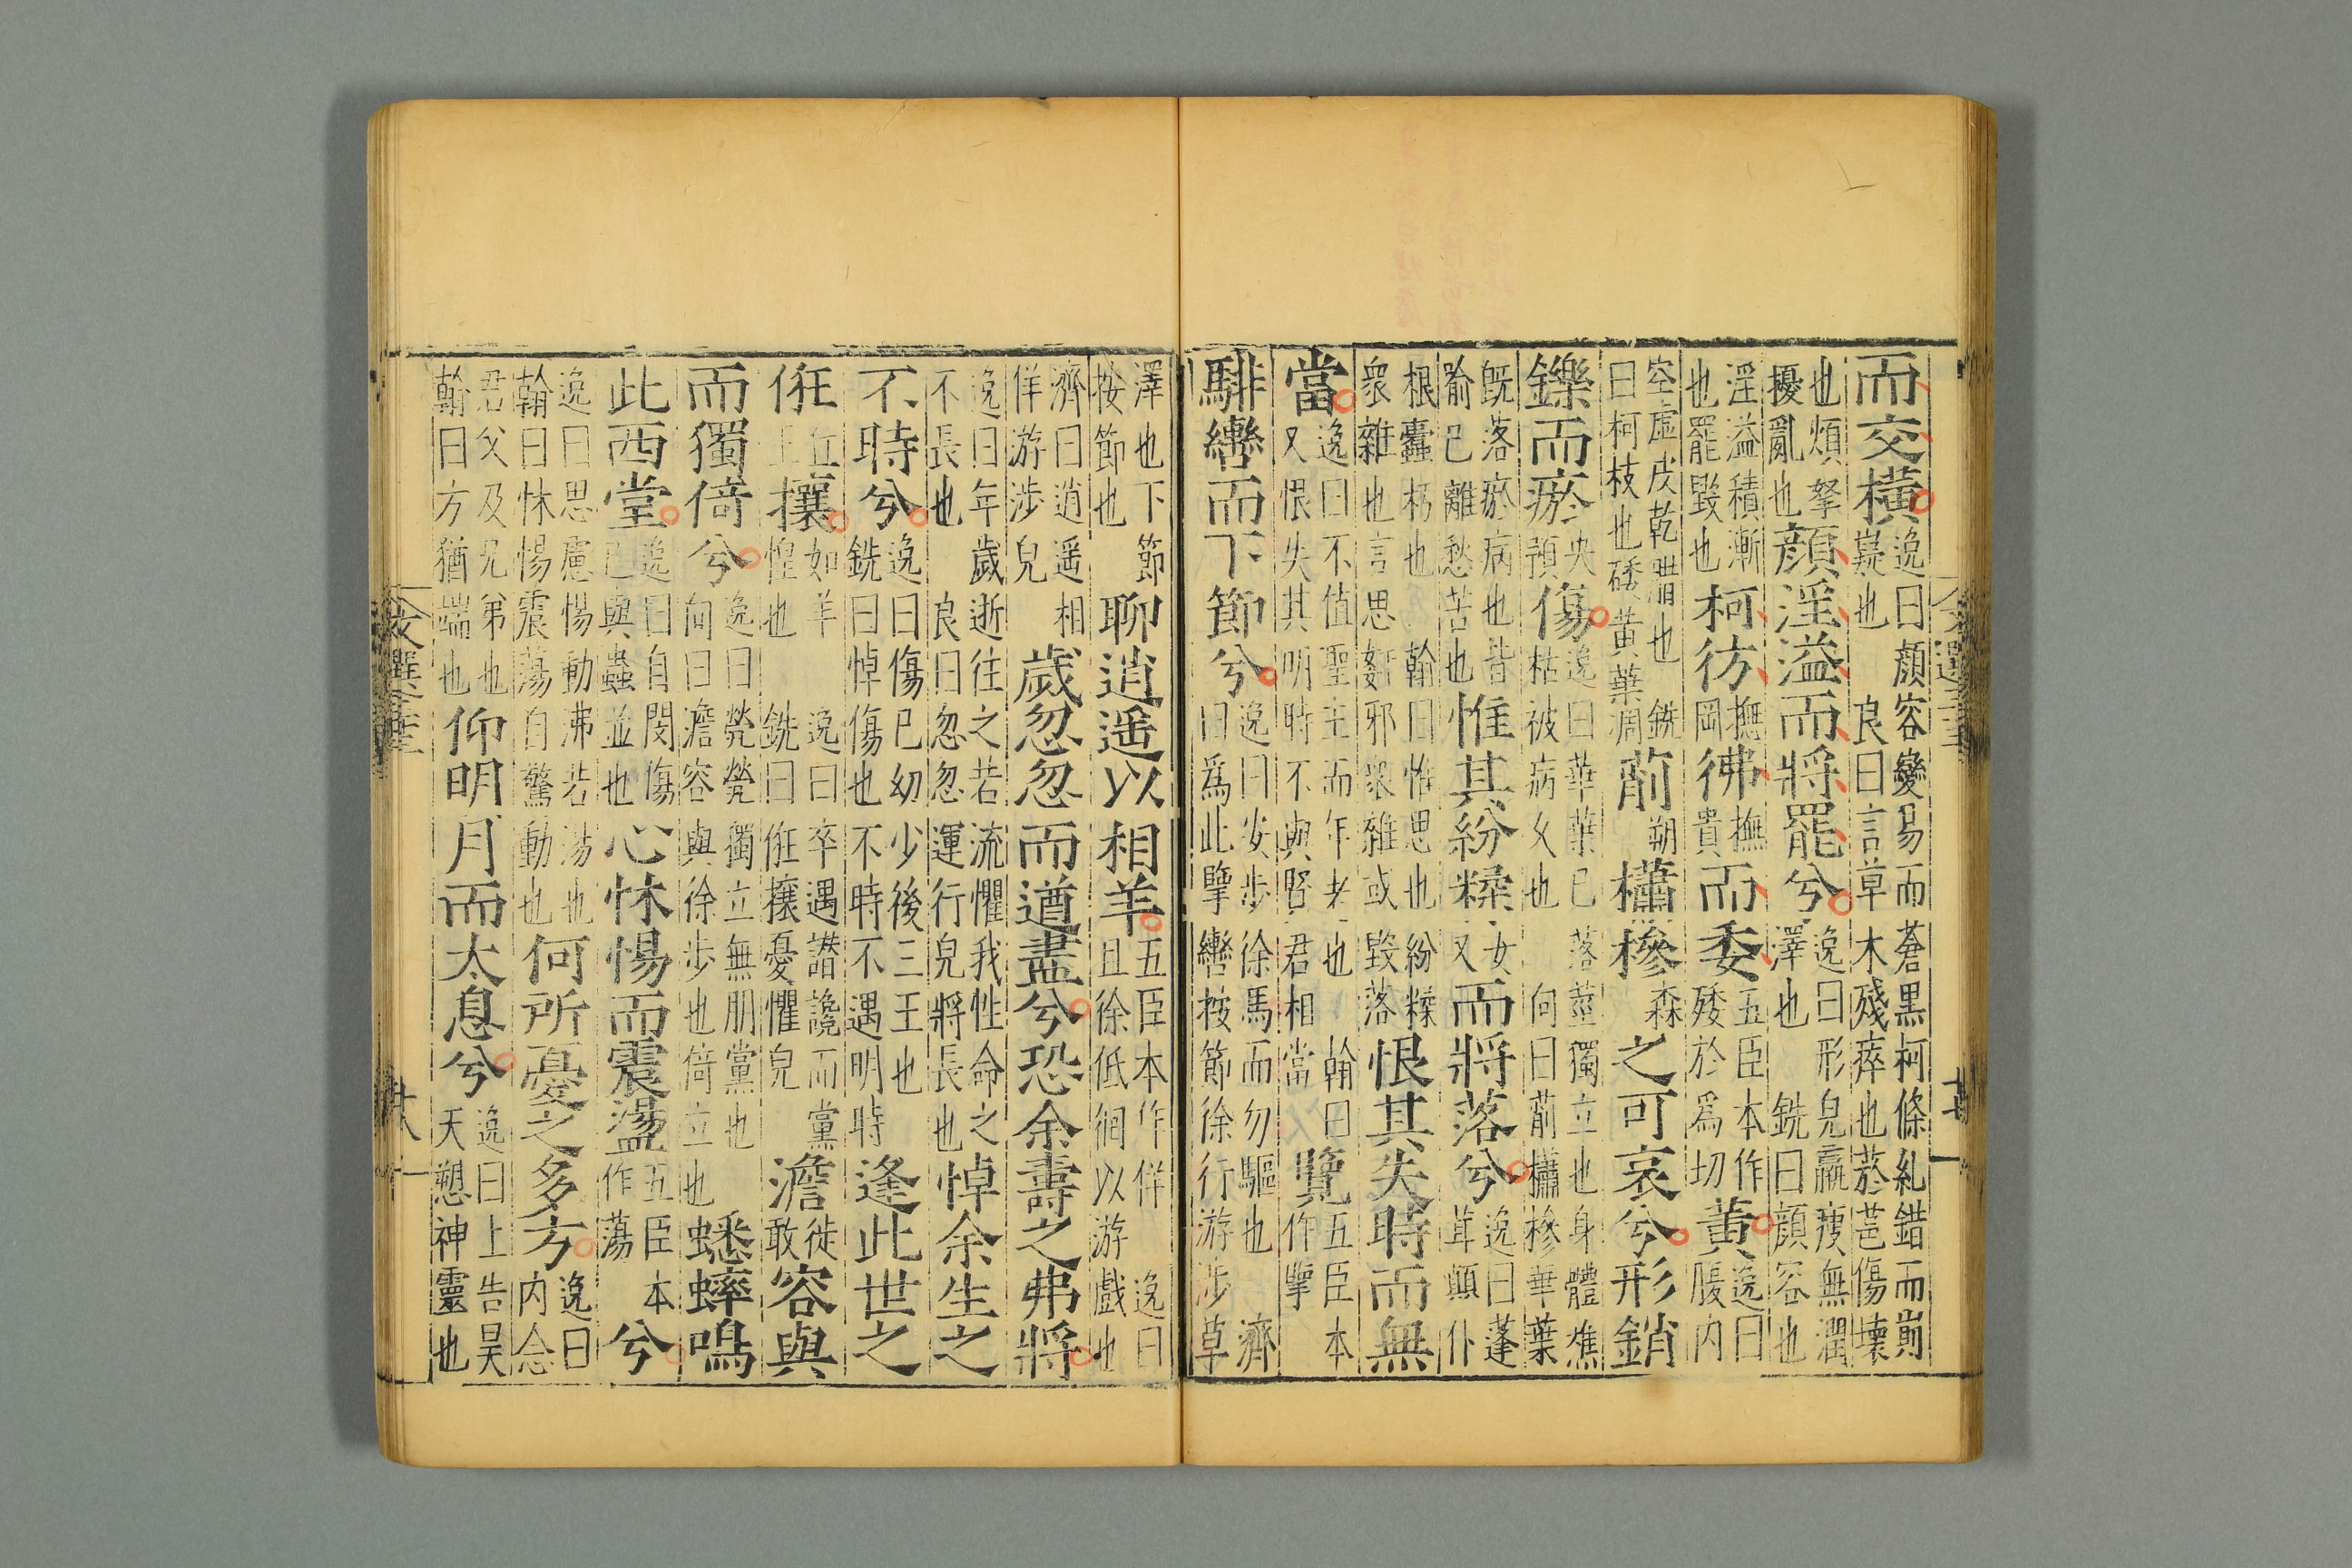 而交橫逸曰顔容變易而蒼黑柯條糺錯而崩嶷也良曰言草木殘瘁也菸芭傷壞
也煩挐擾亂也顔淫溢而將罷兮逸曰形皃羸瘦無潤澤也銑曰顔容也
淫溢積漸也罷毀也柯彷撫岡彿撫貴而委五臣本作矮於爲切黄逸曰腹内
空虛皮乾腊也銑曰柯枝也矮黄葉凋萷朔櫹槮森之可哀兮形銷
鑠而瘀央預傷逸曰華葉已落莖獨立也身體燋枯被病久也向曰萷櫹槮華葉
旣落瘀病也皆喻已離愁苦也惟其紛糅女又而將落兮逸曰蓬茸顛仆
根蠹朽也翰曰惟思也紛糅衆雜也言思姦邪衆雜或毀落恨其失時而無
當逸曰不值聖主而年老也翰曰又恨失其明時不與賢君相當覽五臣本作擥
騑轡而下節兮逸曰安步徐馬而勿驅也濟曰爲此擥轡按節徐行游涉草
澤也下節按節也聊逍遥以相羊五臣本作佯逸曰且徐低徊以游戲也
濟曰逍遥相佯游涉皃歲忽忽而遒盡兮恐余壽之弗將
逸曰年歲逝往之若流懼我性命之不長也良曰忽忽運行皃將長也悼余生之
不時兮逸曰傷已幼少後三王也銑曰悼傷也不時不遇明時逢此世之
俇丘上攘如羊逸曰卒遇譖讒而黨惶也銑曰俇攘憂懼皃澹徒敢容與
而獨倚兮逸曰煢煢獨立無朋黨也向曰澹容與徐步也倚立也蟋蟀鳴
此西堂逸曰自閔傷已與蟲並也心怵惕而震盪五臣本作蕩兮
逸曰思慮惕動沸若湯也翰曰怵惕震蕩自驚動也何所憂之多方逸曰内念
君父及兄弟也翰曰方猶端也仰明月而太息兮逸曰上告昊天愬神靈也